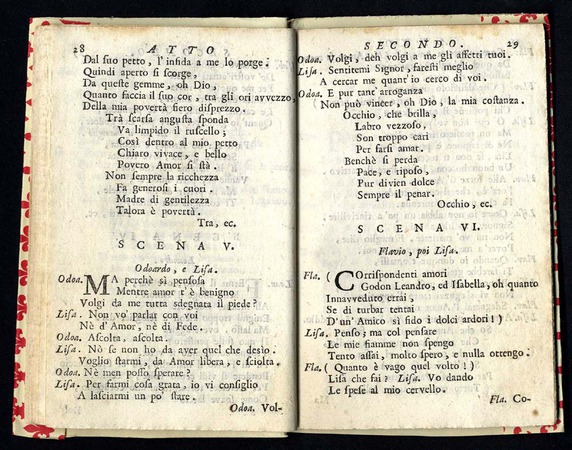 28 ATTO
Dal suo petto, l'infida a me lo porge.
Quindi aperto si scorge,
Da queste gemme, oh Dio,
Quanto faccia il suo cor, tra gli ori avvezzo,
Della mia povertà fiero disprezzo.
Trà scarsa angusta sponda
Va limpido il ruscello;
Così dentro al mio petto
Chiaro vivace, e bello
Povero Amor si stà.
Non sempre la ricchezza
Fa generosi i cuori.
Madre di gentilezza
Talora è povertà.
Tra, ec.
SCENA V.
Odoardo, e Lisa.
Odoa. MA perchè sì pensosa
Mentre amor t'è benigno
Volgi da me tutta sdegnata il piede?
Lisa. Non vo' parlar con voi
Nè d'Amor, nè di Fede.
Odoa. Ascolta, ascolta.
Lisa. Nò se non ho da aver quel che desio.
Voglio starmi, da Amor libera, e sciolta.
Odoa. Nè men posso sperare?
Lisa. Per farmi cosa grata, io vi consiglio
A lasciarmi un po' stare.
Odoa. Vol-
SECONDO. 29
Odoa. Volgi, deh volgi a me gli affetti tuoi.
Lisa. Sentitemi Signor, faresti meglio
A cercar me quant'io cerco di voi.
Odoa. E pur tant'arroganza
(Non può vincer, oh Dio, la mia costanza.
Occhio, che brilla,
Labro vezzoso,
Son troppo cari
Per farsi amar.
Benchè si perda
Pace, e riposo,
Pur divien dolce
Sempre il penar.
Occhio, ec.
SCENA VI.
Flavio, poi Lisa.
Fla. ( COrrispondenti amori
Godon Leandro, ed Isabella, oh quanto
Innavveduto errai,
Se di turbar tentai
D'un' Amico sì fido i dolci ardori!)
Lisa. Penso; ma col pensare
Le mie fiamme non spengo
Tento assai, molto spero, e nulla ottengo.
Fla. ( Quanto è vago quel volto!)
Lisa che fai? Lisa. Vo dando
Le spese al mio cervello.
Fla. Co-